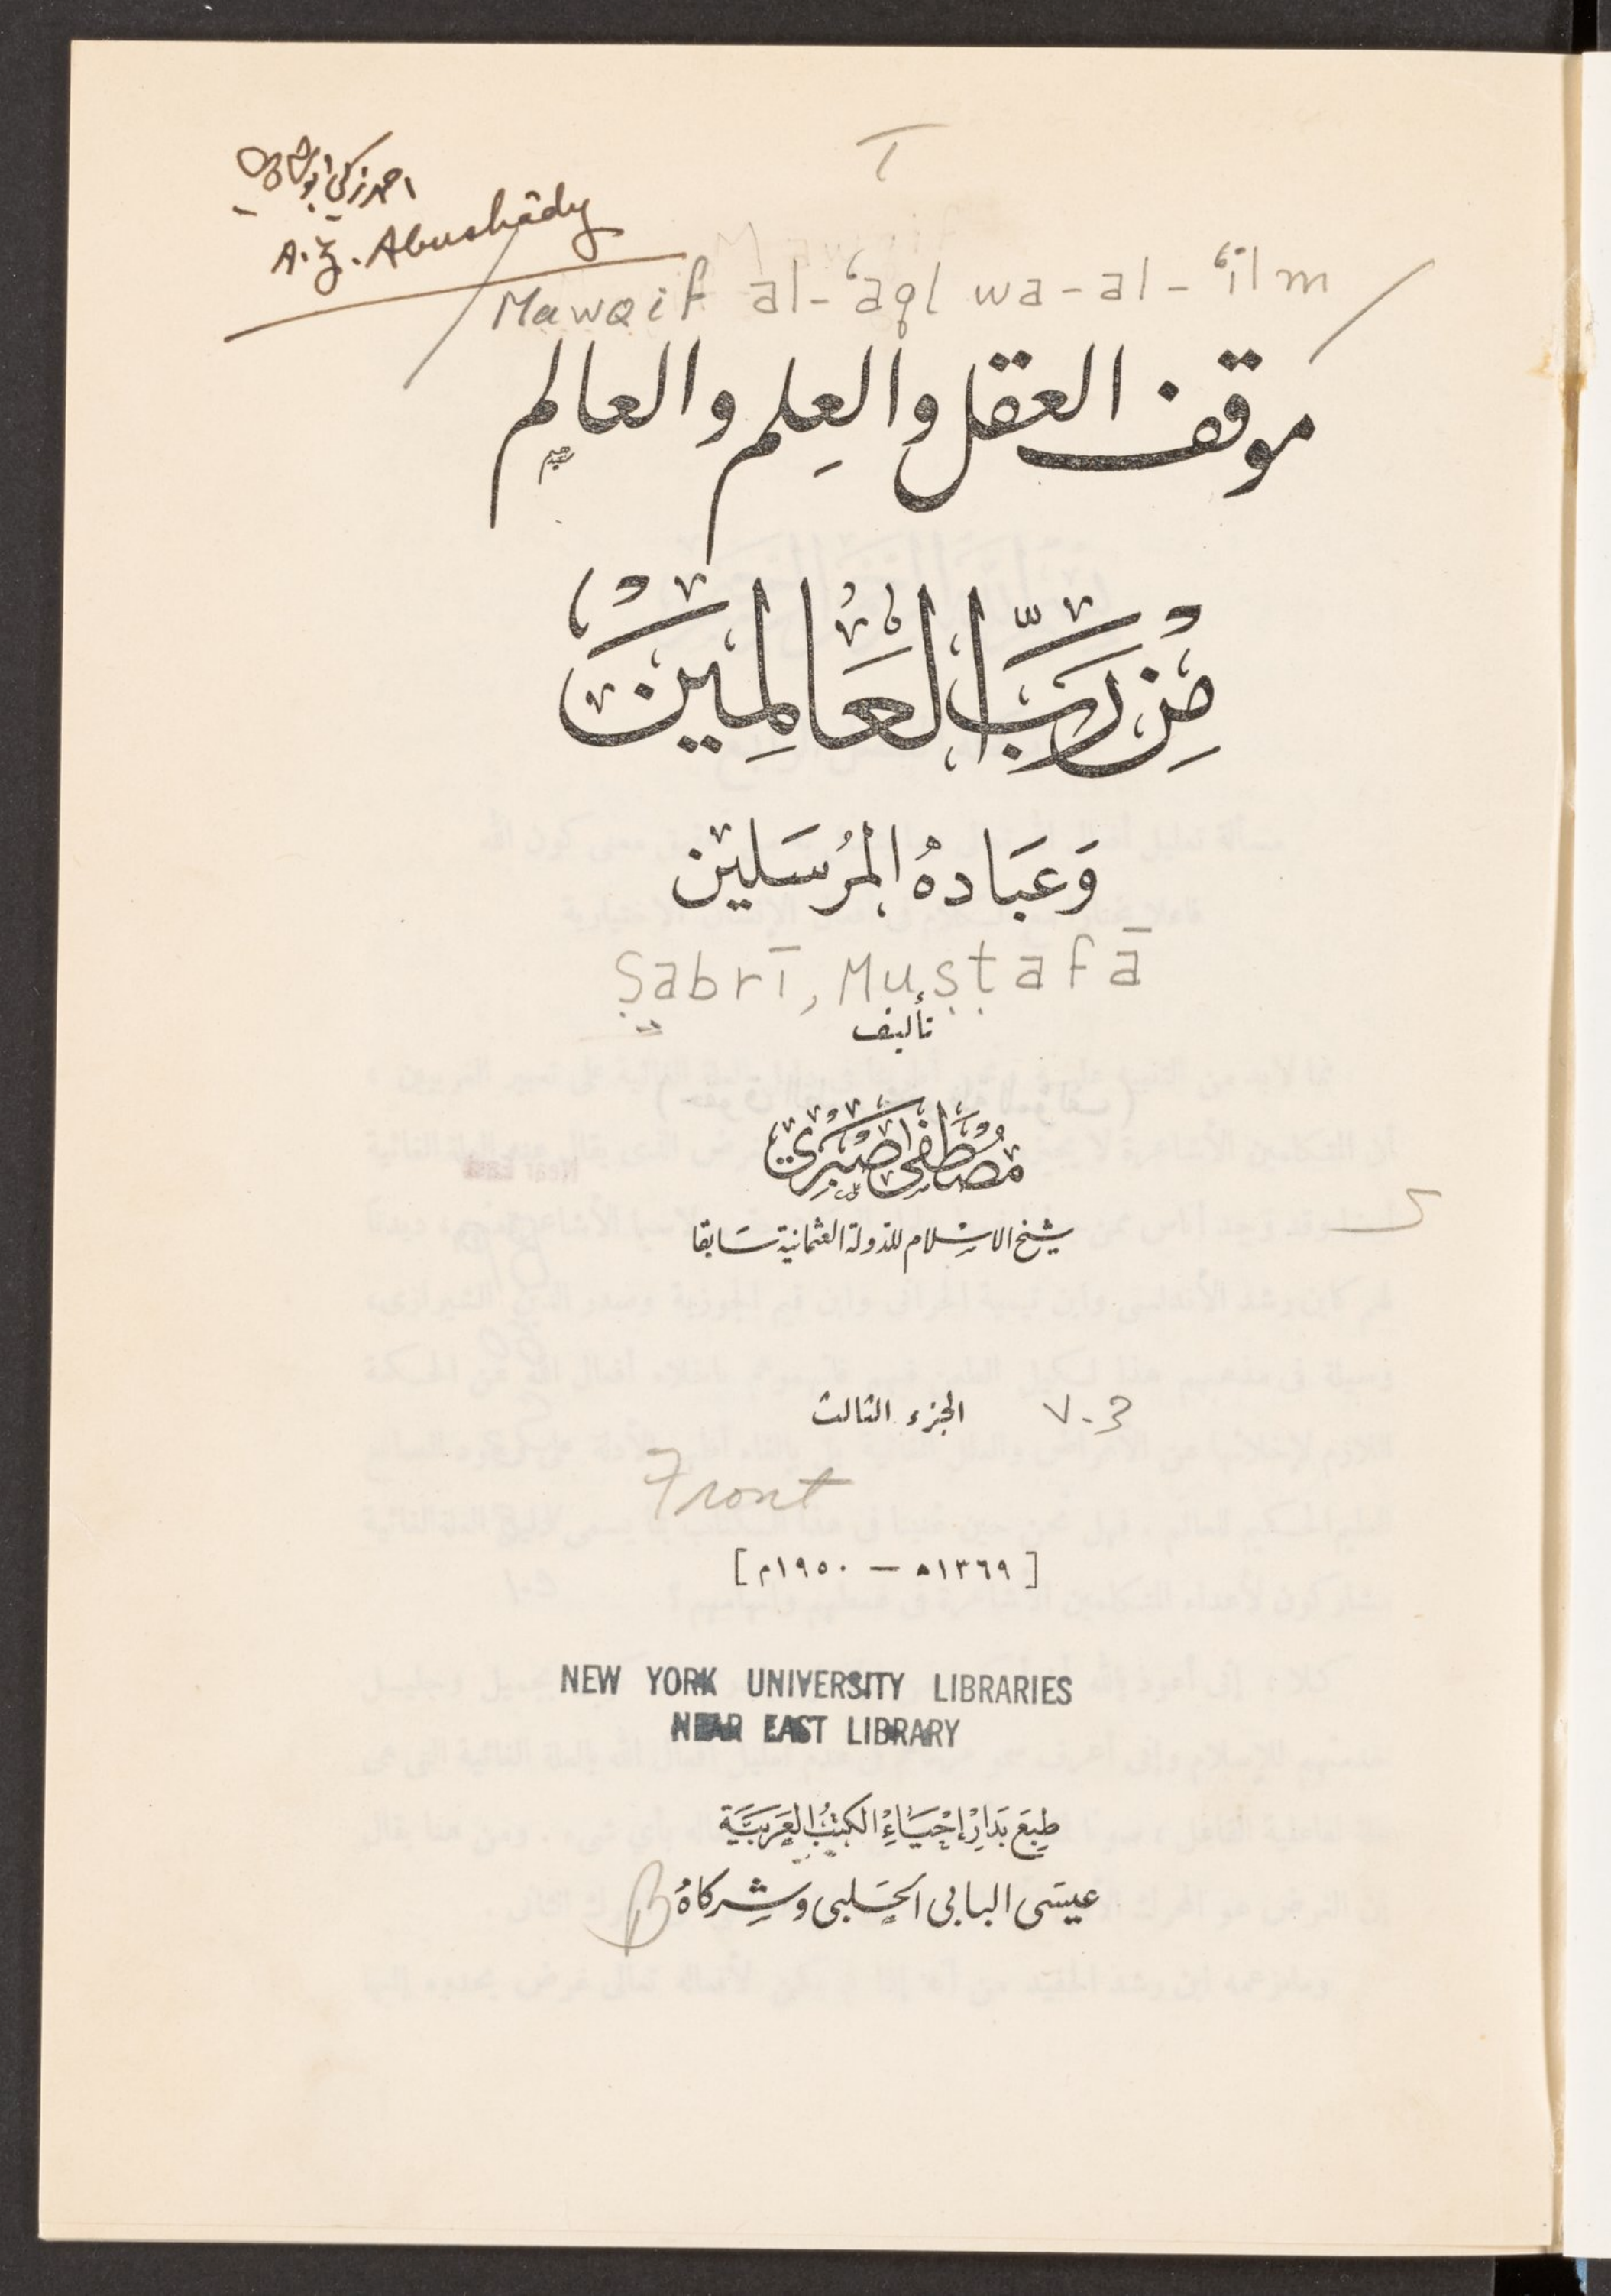 احمد زكي ابو شادي
A. Z. Abushâdy
Mawqif al-ʻaql wa-al-ʻilm
موقف العقل والعِلم والعالِم
مِن رَبِّ العَالَمِينَ
وَعِبَادهُ المرُسَلين
Ṣabrī, Muṣṭafā
تأليف
مُصْطَفى صَبْرِي
شيخ الاسلام للدولة العثمانية سَابقا
الجزء الثالث
v. 3
Front
[ ١٣٦٩ ه — ١٩٥٠ م ]
NEW YORK UNIVERSITY LIBRARIES
NEAR EAST LIBRARY
طبِعَ بَدارْ إحْيَاءِ الكتبُ العَرَبَيَّة
عيسَى البابى الحَلبى وشِركاهُ